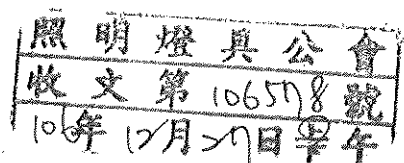 照明燈具公會
收文第106578號
106年12月27日午